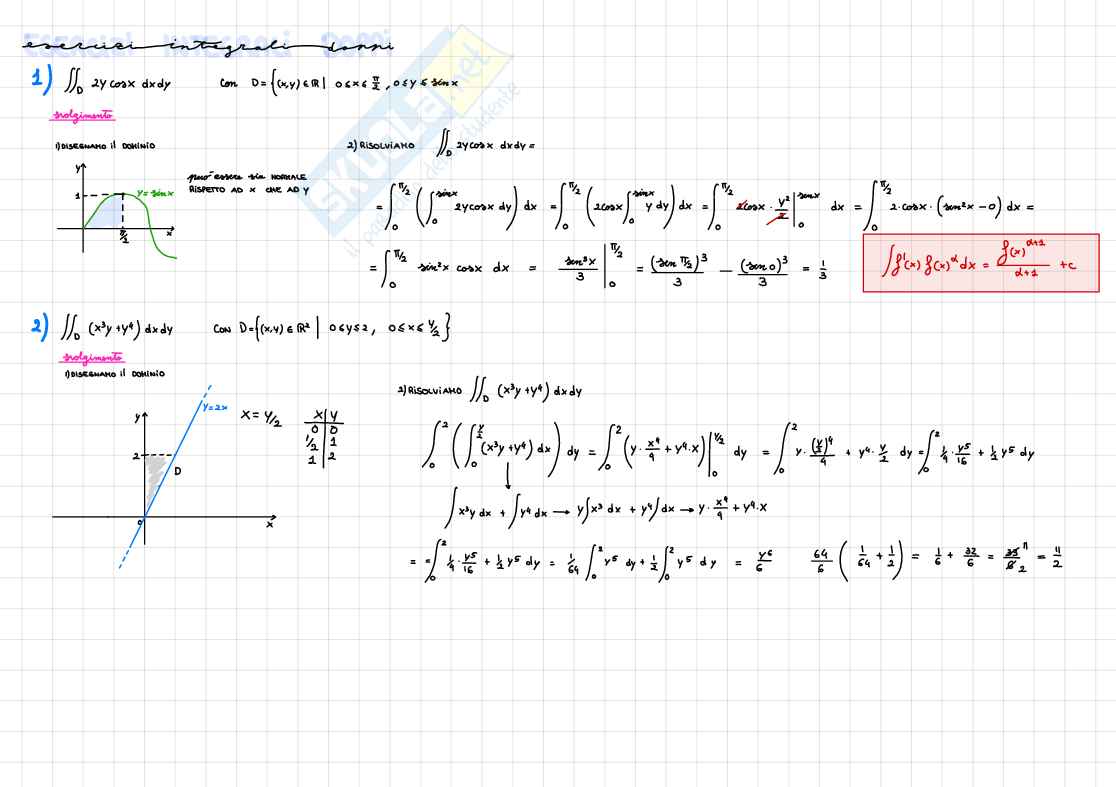 esercizi integrali doppi
1) ∬_D 2y cosx dxdy con D={(x,y)∈ℝ | 0≤x≤π/2, 0≤y≤sinx
svolgimento
1) DISEGNAMO il DOMINIO
y
1
y=sinx
π/2
x
può essere sia NORMALE
RISPETTO AD x CHE AD y
2) RISOLVIAMO ∬_D 2ycosx dxdy =
= ∫_0^{π/2} (∫_0^{sinx} 2ycosx dy) dx = ∫_0^{π/2} (2cosx ∫_0^{sinx} y dy) dx = ∫_0^{π/2} 2cosx · y²/2 |_0^{senx} dx = ∫_0^{π/2} 2·cosx·(sen²x − 0) dx =
= ∫_0^{π/2} sin²x cosx dx = sen³x/3 |_0^{π/2} = (sen π/2)³/3 − (sen 0)³/3 = 1/3
∫f'(x) f(x)^α dx = f(x)^{α+1}/(α+1) + c
2) ∬_D (x³y+y⁴) dxdy CON D={(x,y)∈ℝ² | 0≤y≤2, 0≤x≤y/2}
svolgimento
1) DISEGNAMO il DOMINIO
y
y=2x
2
D
0
x
x = y/2
x y
0 0
1/2 1
1 2
2) RISOLVIAMO ∬_D (x³y+y⁴) dxdy
∫_0^2 (∫_0^{y/2} (x³y+y⁴) dx) dy = ∫_0^2 (y·x⁴/4 + y⁴·x)|_0^{y/2} dy = ∫_0^2 y·(y/2)⁴/4 + y⁴·y/2 dy = ∫_0^2 1/4·y⁵/16 + 1/2 y⁵ dy
∫x³y dx + ∫y⁴ dx → y∫x³ dx + y⁴∫dx → y·x⁴/4 + y⁴·x
= =∫_0^2 1/4·y⁵/16 + 1/2 y⁵ dy = 1/64 ∫_0^2 y⁵ dy + 1/2 ∫_0^2 y⁵ dy = y⁶/6 64/6 (1/64 + 1/2) = 1/6 + 32/6 = 33/6 11 2 = 11/2
SKUOLA.net